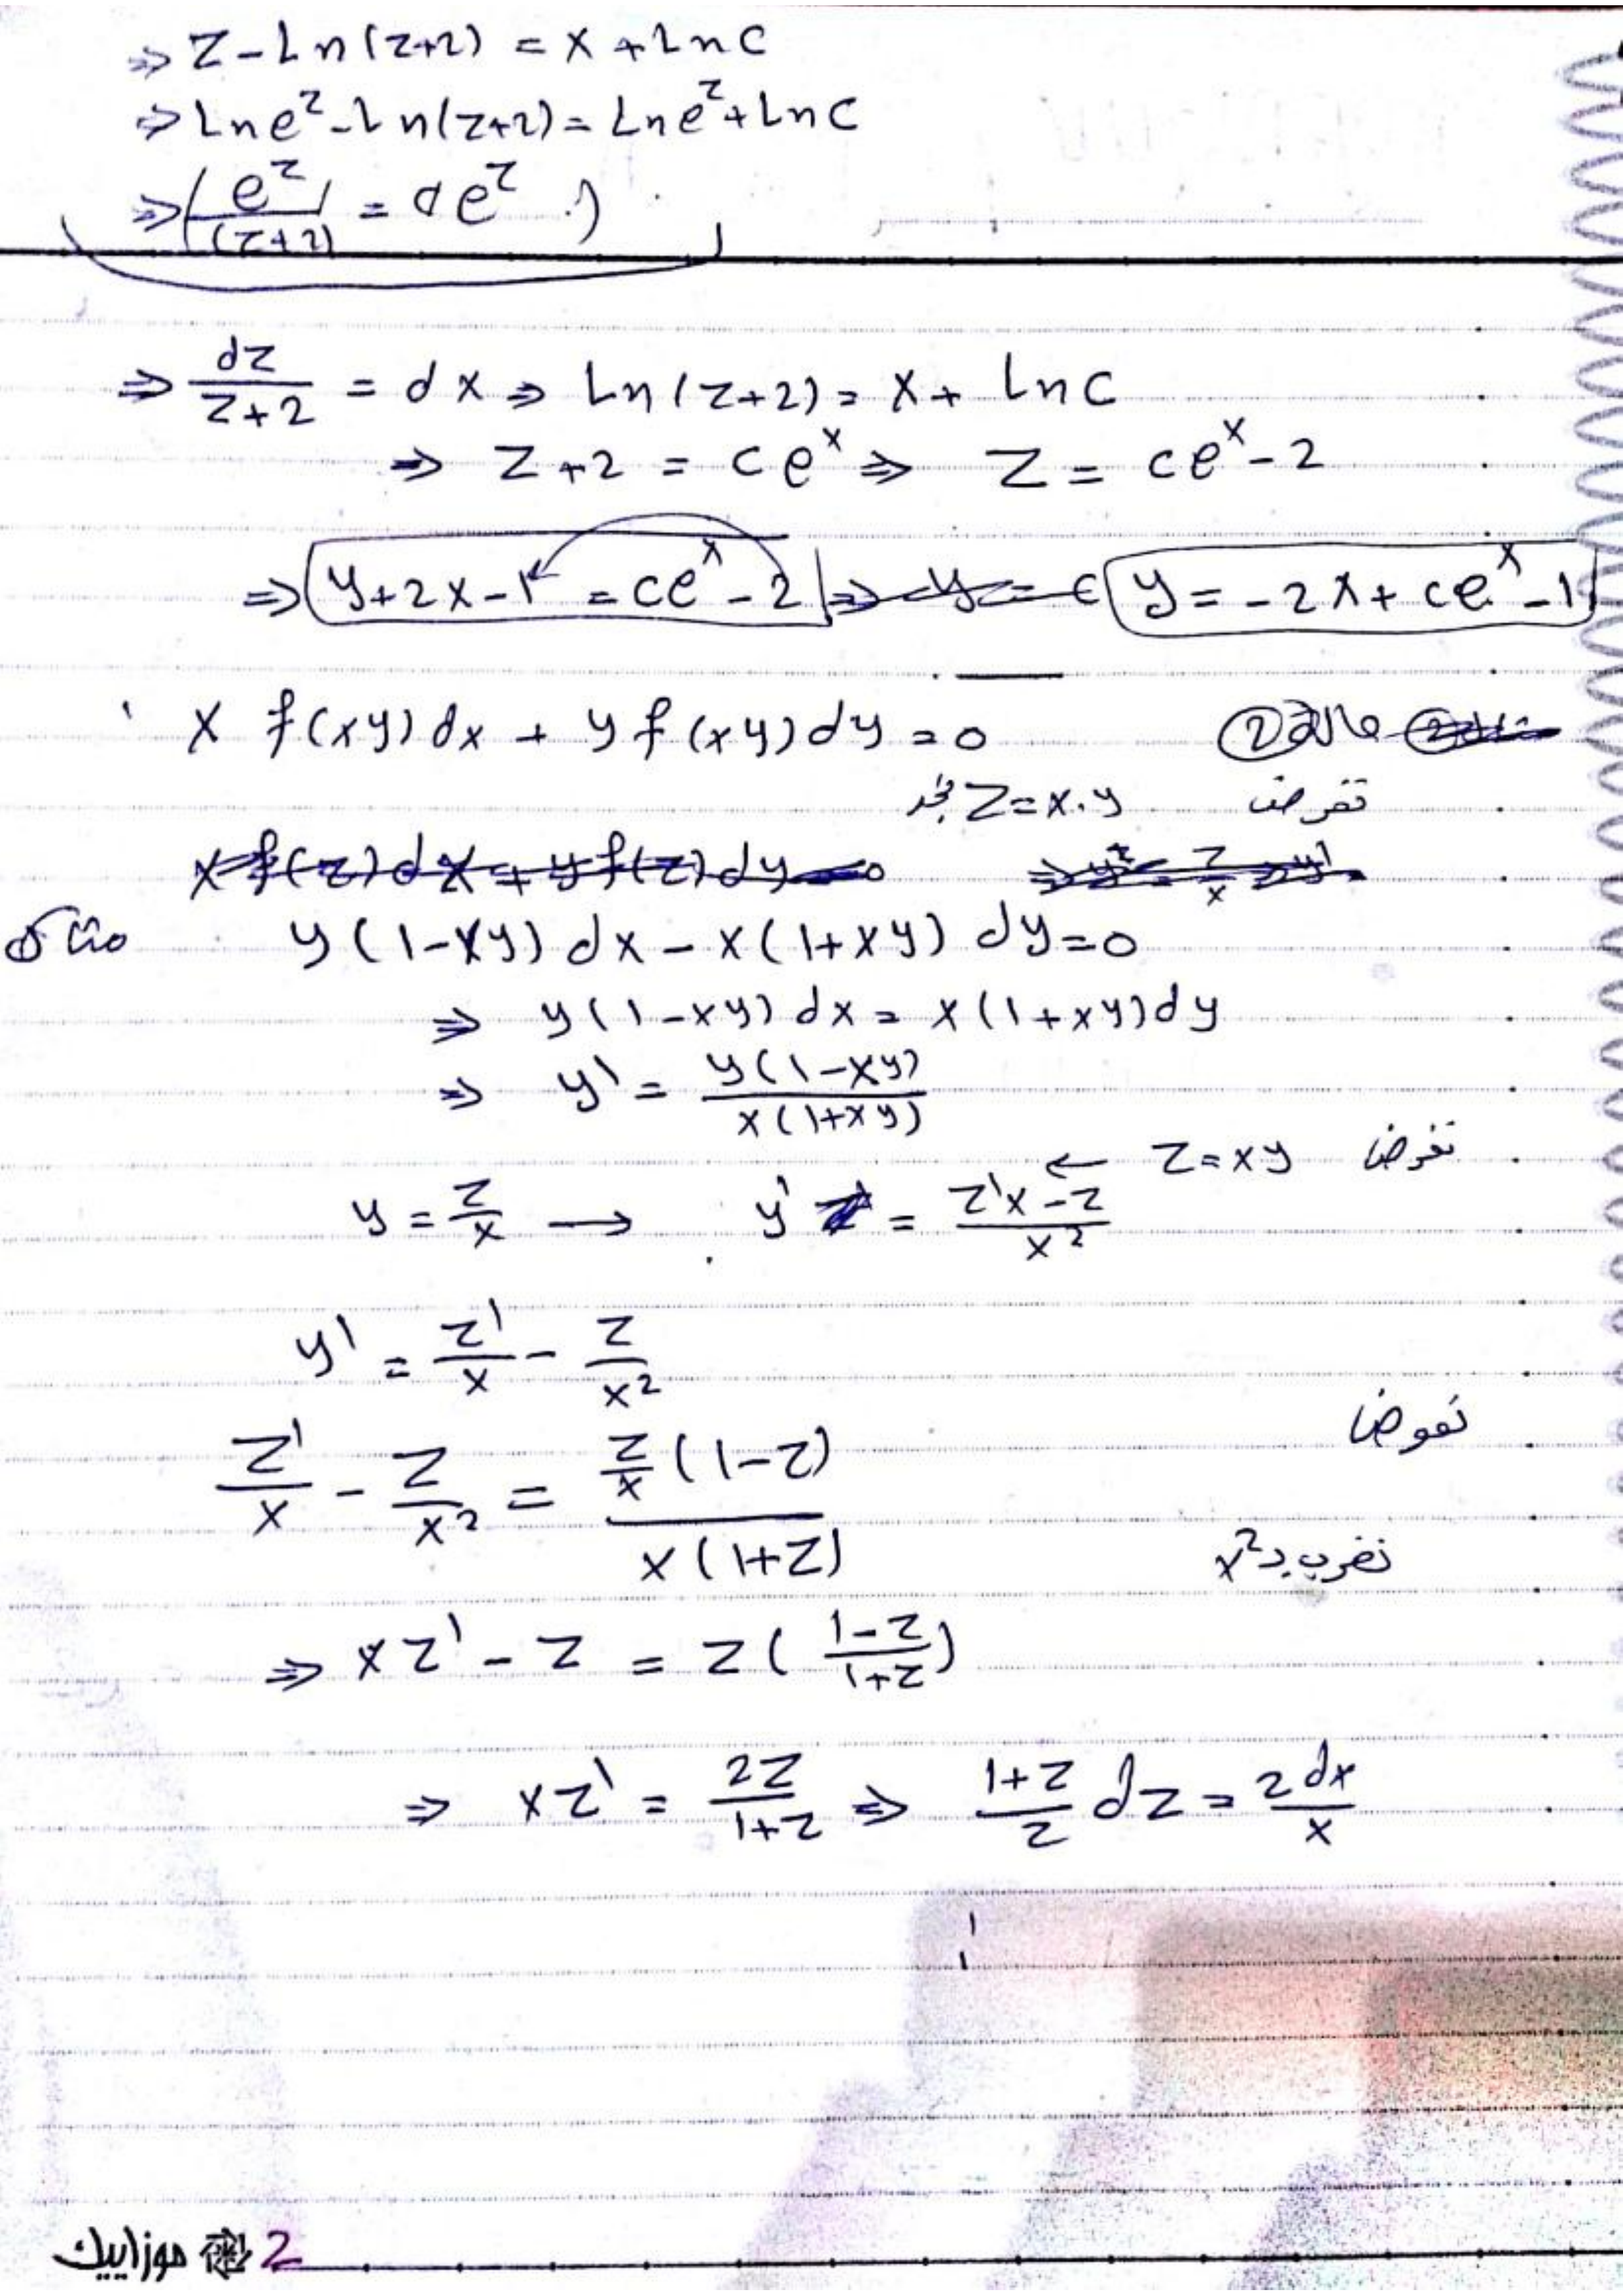 ⇒ z - Ln(z+2) = x + Ln C
⇒ Ln e^z - Ln(z+2) = Ln e^z + Ln C
⇒ (e^z/(z+2) = c e^z .)
⇒ dz/(z+2) = dx ⇒ Ln(z+2) = x + Ln C
⇒ z+2 = c e^x ⇒ z = c e^x - 2
⇒ y+2x-1 = c e^x - 2 ⇒ y = c y = -2x + c e^x - 1
x f(xy) dx + y f(xy) dy = 0 حالة ②
نفرض z = x.y نجد
x f(z) dx + y f(z) dy = 0
مثال y(1-xy) dx - x(1+xy) dy = 0
⇒ y(1-xy) dx = x(1+xy) dy
⇒ y' = y(1-xy)/x(1+xy)
نفرض z = xy ←
y = z/x → y' = (z'x - z)/x²
y' = z'/x - z/x²
نعوض
z'/x - z/x² = (z/x (1-z))/(x(1+z))
نضرب بـ x²
⇒ xz' - z = z((1-z)/(1+z))
⇒ xz' = 2z/(1+z) ⇒ (1+z)/z dz = 2 dx/x
موزاييك 2